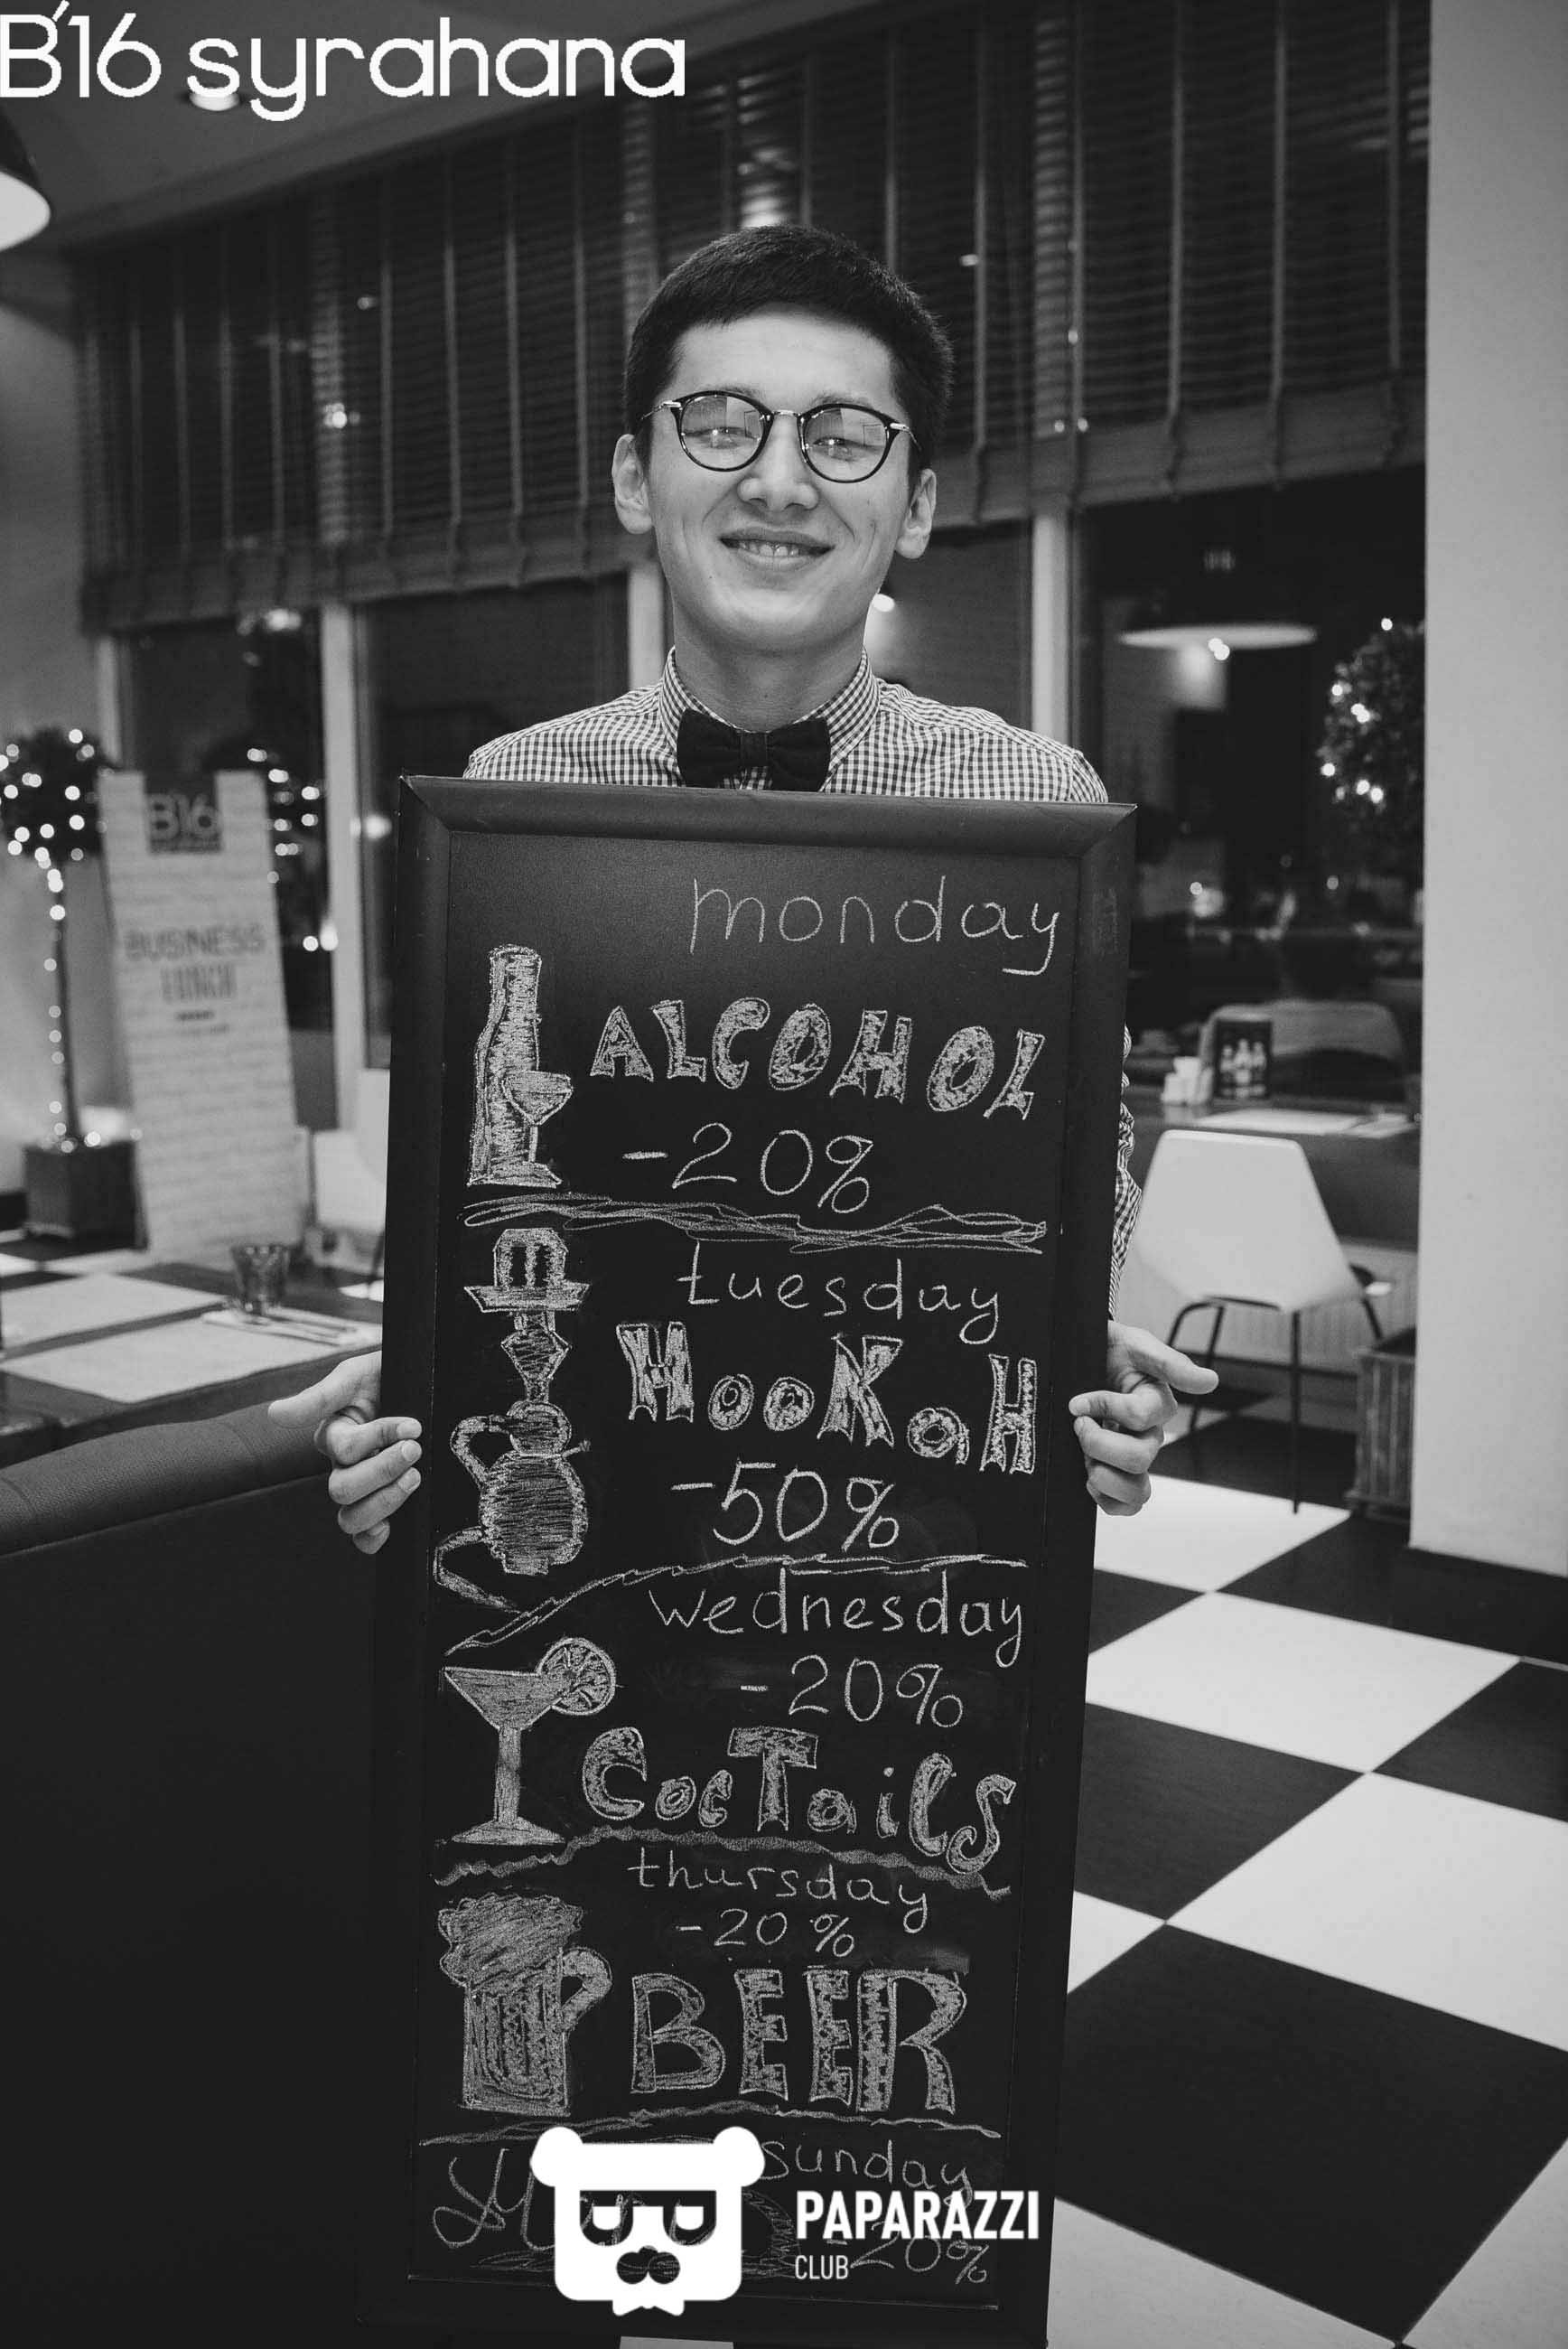 B'16 syrahana
B'16
BUSINESS
LUNCH
monday
ALCOHOL
-20%
tuesday
HooKaH
-50%
wednesday
-20%
CocTails
thursday
-20%
BEER
sunday
-20%
PAPARAZZI
CLUB